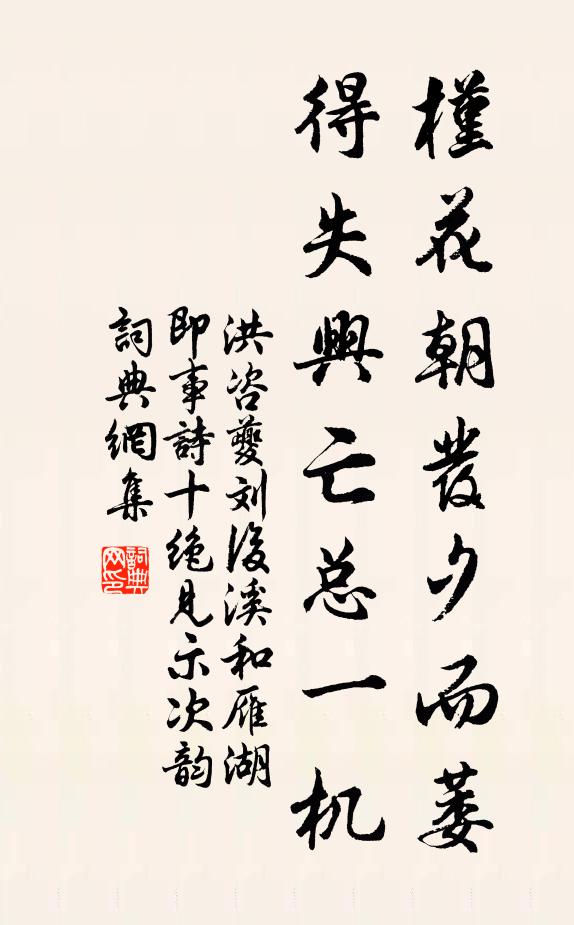 槿花朝發夕而萎
得失興亡总一机
洪咨夔刘後溪和雁湖
即事詩十绝見示次韵
詞典網集
詞典网印